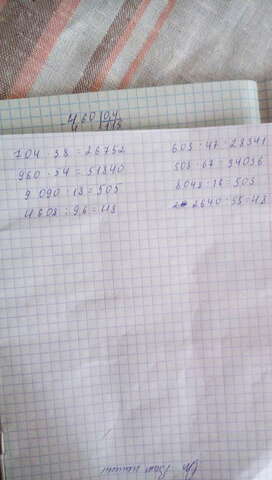 704 · 38 = 26752
960 · 54 = 51840
9 090 : 18 = 505
4608 : 96 = 48
603 · 47 = 28341
508 · 67 = 34036
8048 : 16 = 503
2640 : 55 = 48